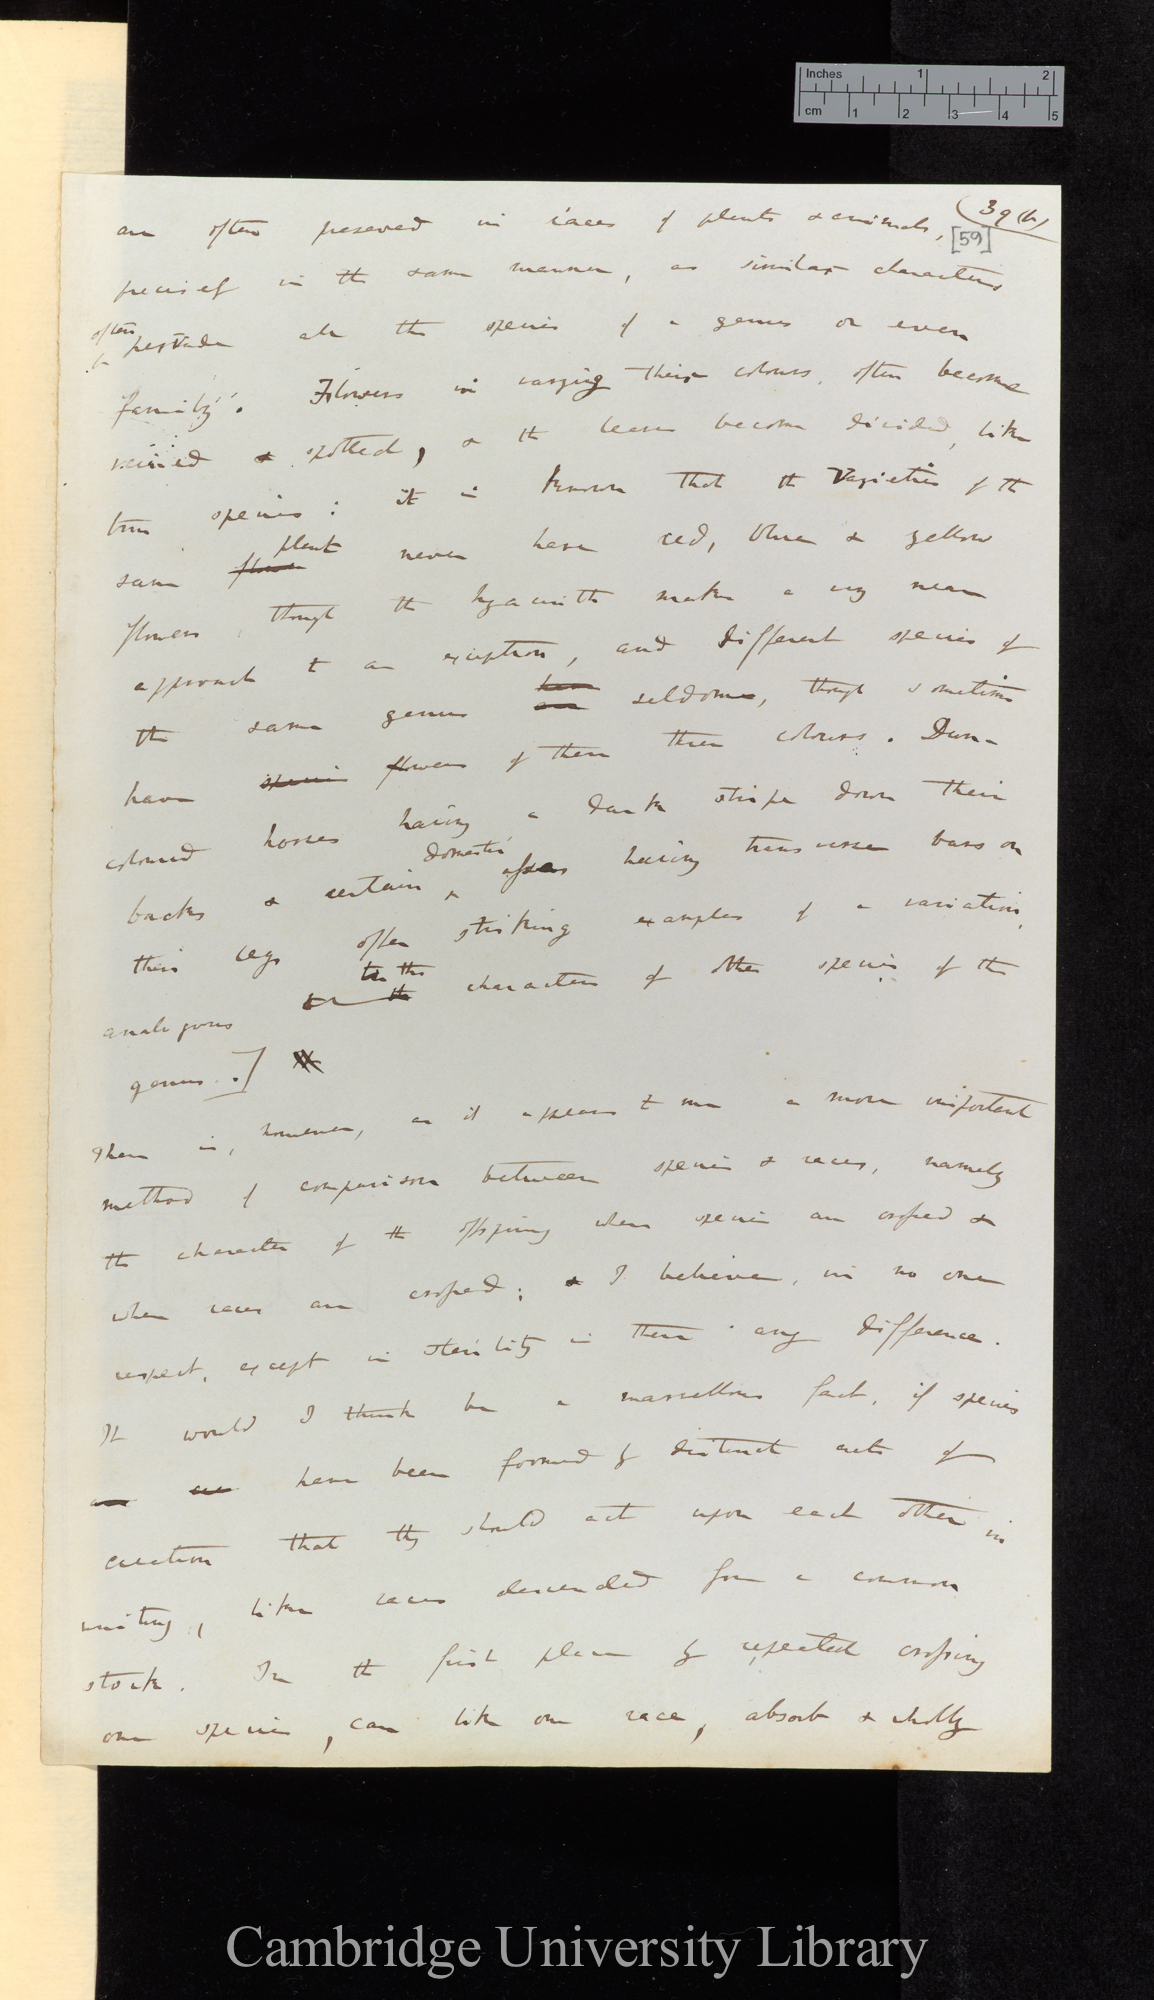 Inches 1 2
cm 1 2 3 4 5
39 (b)
[59]
are often preserved in races of plants & animals,
precisely in the same manner, as similar characters
often
pervade all the species of a genus or even
family. Flowers in varying their colours, often become
veined & spotted, & the leaves become divided, like
true species: it is known that the varieties of the
plant
same flower never have red, blue & yellow
flowers, though the hyacinth makes a very near
approach to an exception, and different species of
have
the same genus are seldom, though sometimes
have species flowers of these three colours. Dun-
coloured horses having a dark stripe down their
domestic
backs & certain asses having transverse bars on
their legs offer striking examples of a variation,
to the
analogous to the characters of other species of the
genus.]
There is, however, as it appears to me a more important
method of comparison between species & races, namely
the character of the offspring when species are crossed &
when races are crossed; & I believe, in no one
respect, except in sterility is there any difference.
It would I think be a marvellous fact, if species
have been formed by distinct acts of
creation that they should act upon each other in
uniting, like races descended from a common
stock. In the first place by repeated crossing
one species, can like one race, absorb & wholly
Cambridge University Library